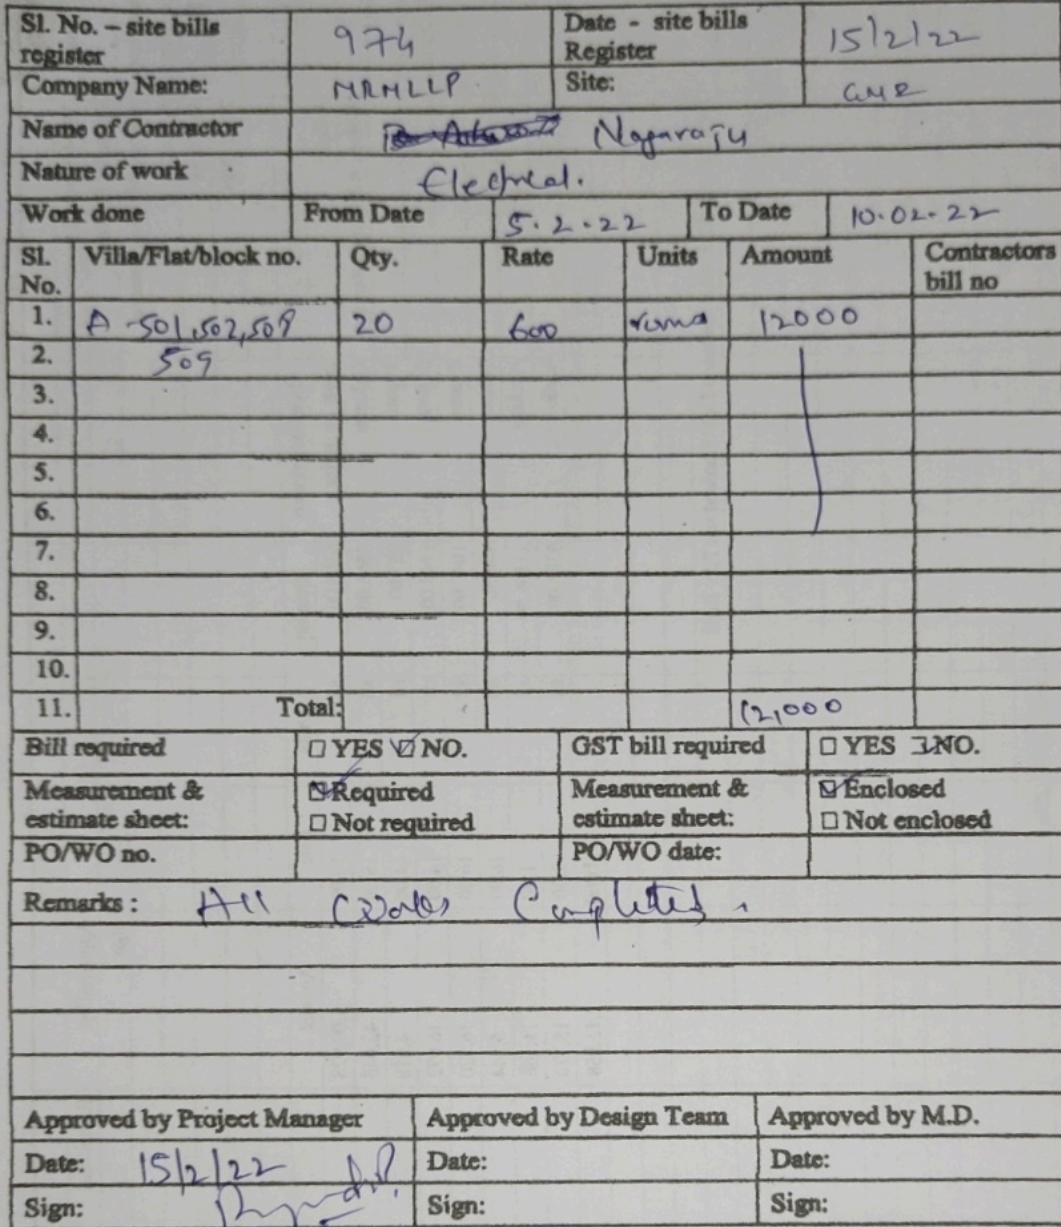 Sl. No. – site bills register 974 Date - site bills Register 15/2/22
Company Name: MRMLLP Site: GMR
Name of Contractor Nagaraju
Nature of work Electrical.
Work done From Date 5.2.22 To Date 10.02.22
Sl. No. Villa/Flat/block no. Qty. Rate Units Amount Contractors bill no
1. A-501,502,508 20 600 12000
2. 509
3.
4.
5.
6.
7.
8.
9.
10.
11. Total: 12,000
Bill required □ YES ☑ NO. GST bill required □ YES NO.
Measurement & estimate sheet: ☑ Required Measurement & estimate sheet: ☑ Enclosed
□ Not required □ Not enclosed
PO/WO no. PO/WO date:
Remarks : All Completed.
Approved by Project Manager Approved by Design Team Approved by M.D.
Date: 15/2/22 Date: Date:
Sign: Sign: Sign: